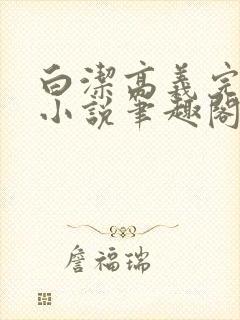 白潔高義完
小說筆趣閣
詹福瑞